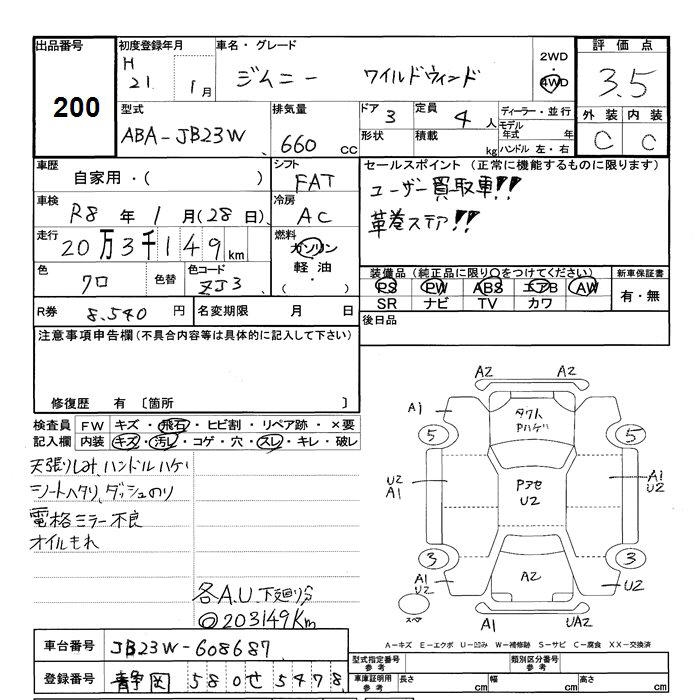 出品番号
200
初度登録年月
H
21 1月
車名・グレード
ジムニー ワイルドウインド
2WD
4WD
評価点
3.5
型式
ABA-JB23W
排気量
660 CC
ドア 3
形状
定員 4 人
積載 kg
ディーラー・並行
モデル年式 年
ハンドル 左・右
外装 内装
C C
車歴
自家用・( )
シフト
FAT
セールスポイント(正常に機能するものに限ります)
ユーザー買取車!!
革巻ステア!!
車検
R8 年 1 月(28 日)
冷房
AC
走行
20万3千149 km
燃料
ガソリン
軽油・
( )
色
クロ
色替
色コード
ZJ3
装備品(純正品に限り○をつけてください)
PS PW ABS エアB AW
SR ナビ TV カワ
新車保証書
有・無
R券 8,540 円
名変期限 月 日
後日品
注意事項申告欄(不具合内容等は具体的に記入して下さい)
修復歴 有 〔箇所 〕
検査員 FW キズ・飛石・ヒビ割・リペア跡・×要
記入欄 内装 キズ・汚レ・コゲ・穴・スレ・キレ・破レ
天張りしみ、ハンドルハゲ
シートヘタリ、ダッシュのり
電格ミラー不良
オイルもれ
各A.U 下廻り分
◎203149Km
A2 A2
A1
タワト
Pハゲ
5 5
U2
A1
Pアセ
U2
A1
U2
3 3
A1
U2
A2
U2
スペア
A1 UA2
A-キズ E-エクボ U-凹み W-補修跡 S-サビ C-腐食 XX-交換済
車台番号 JB23W-608687
登録番号 静岡 580 せ 5478
型式指定番号
参考
類別区分番号
参考
車庫証明用
参考
長さ cm
幅 cm
高さ cm